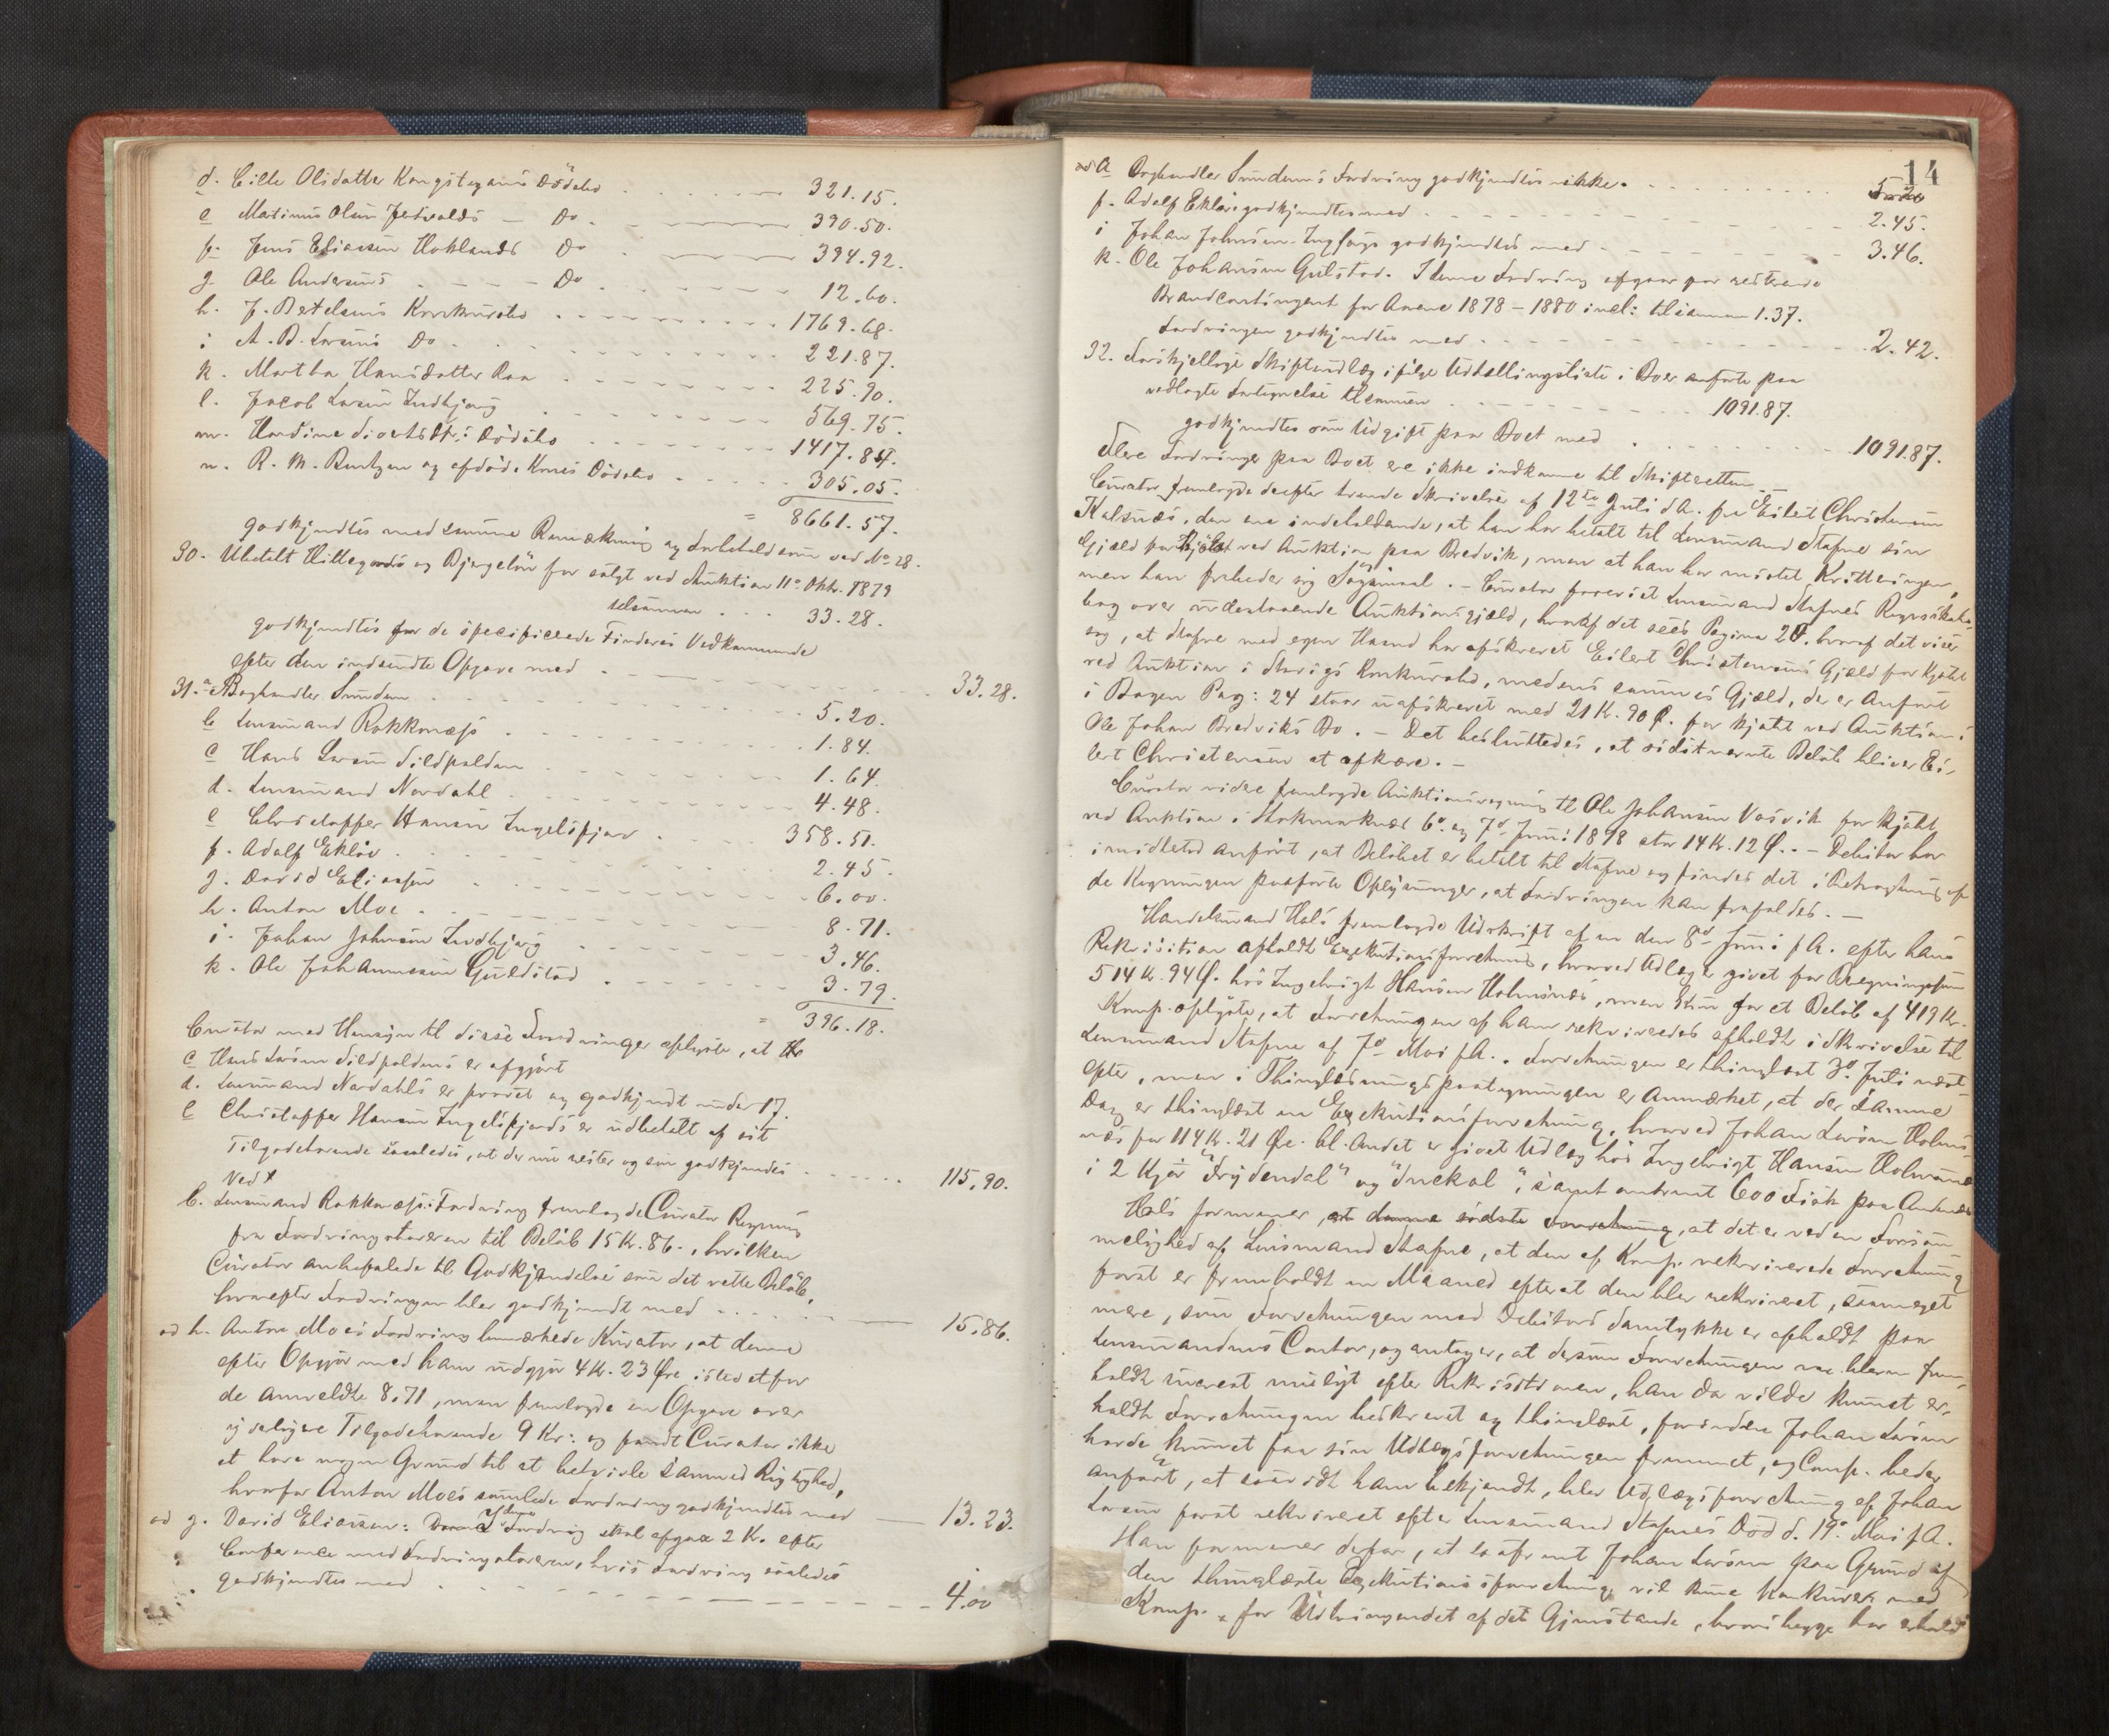 d. Cille Olsdatter Kongstegans Dödsbo 321.15.
e Martinus Olsen Do. 390.50.
f. Jens Eliassen Hoklands Do 394.92.
g. Ole Andersens Do 12.60.
h. J. Bertelsens Konkursbo 1769.68.
i A. B. Larsens Do 221.87.
k. Martha Hansdatter Raa 225.90.
l. Jacob Larsen Indbjerg 569.75.
m. Hardine Sivertsdtr: Dödsbo 1417.84.
n. R. M. Bentzen og afdöde Kones Dödsbo 305.05.
= 8661.57.
godkjendtes med samme Bemærkning og Forbehold som ved No 28.
30. Ubetalt Hittegods og Bjergelön for solgt ved Auktion 11te Oktbr. 1879
tilsammen 33.28.
godkjendtes for de specificerede Finderes Vedkommende
efter den indsendte Opgave med 33.28.
31. a Boghandler Sundem 5.20.
b Lensmand Rokkonæs 1.84.
c Hans Larsen Sildpolden 1.64
d. Lensmand Nordahl 4.48.
e Christoffer Hansen Ingelsfjord 358.51.
f. Adolf Eklöv 2.45
g. David Eliassen 6.00.
h. Anton Moe 8.71.
i. Johan Johnsen Indbjerg 3.46.
k. Ole Johannesen Guldstad 3.79.
= 396.18.
Curator med Hensyn til disse Fordringer oplyste, at
c Hans Larsen Sildpoldens er afgjort
d. Lensmand Nordahls er prövet og godkjendt under 17.
e Christoffer Hansen Ingelsfjords er udbetalt af sit
Tilgodehavende saaledes, at der nu rester og som godkjendes 115.90.
Ved
b. Lensmand Rokkonæs: Fordring fremlagde Curator Regning
fra Fordringshaveren til Belöb 15 Kr. 86., hvilken
Curator anbefalede til Godkjendelse som det rette Belöb,
hvorefter Fordringen blev godkjendt med 15.86.
ad h. Anton Moes Fordring bemærkede Kurator, at denne
efter Opgjör med ham udgjör 4 Kr. 23 Öre istedetfor
de anmeldte 8.71, men fremlagde en Opgave over
yderligere Tilgodehavende 9 Kr: og fandt Curator ikke
at have nogen Grund til at betvivle sammes Rigtighed,
hvorfor Anton Moes samlede Fordring godkjendtes med 13.23.
ad g. David Eliassen: I denne Fordring skal afgaa 2 Kr. efter
Conference med Fordringshaveren, hvis Fordring saaledes
godkjendtes med 4.00
14
ad a Boghandler Sundems Fordring godkjendtes ikke.
f. Adolf Eklövs godkjendtes med 2.45.
i Johan Johnsen godkjendtes med 3.46.
k. Ole Johansen Gulstad. I denne Fordring afgaar paa resterende
Brandcontingent for Aarene 1878 - 1880 incl: tilsammen 1.37.
Fordringen godkjendtes med 2.42.
32. Forskjellige Skifteudlæg ifølge Udtællingsliste i Boer anførte paa
vedlagte Fortegnelse tilsammen 1091.87.
godkjendtes som Udgift paa Boet med 1091.87.
Flere Fordringer paa Boet ere ikke indkomne til Skifteretten.
Curator fremlagde derefter tvende Skrivelser af 12te Juli d.A. fra Eilert Christensen
Kalsnæs, den ene indeholdende, at han har betalt til Lensmand Stafne sin
Gjæld for Kjöbt ved Auktion paa Bredvik, men at han har mistet Kvitteringen,
men han frabeder sig Sögsmaal. - Curator foreviste Lensmand Stafnes Regnskabs-
bog over udestaaende Auktionsgjæld, hvoraf det sees Pagina 20. hvoraf det viser
sig, at Stafne med egen Haand har afskrevet Eilert Christensens Gjæld for Kjöbt
ved Auktion i Konkursbo, medens sammes Gjæld, der er anfört
i Bogen Pag: 24 staar uafskrevet med 21 Kr. 90 Ø. for kjøbt ved Auktion i
Ole Johan Bredviks Bo. - Det besluttedes, at sidstnævnte Belöb bliver Ei-
lert Christensen at afkræve. -
Curator videre fremlagde Auktionsregning til Ole Johansen Vasvik for kjøbt
ved Auktion i Stokmarknæs 6te og 7de Juni 1878 stor 14 Kr. 12 Ø. - Debitor har
imidlertid anfört, at Belöbet er betalt til Stafne og findes det i Betragtning af
de Regningen paaførte Oplysninger, at Fordringen kan frafaldes. -
Handelsmand Hals fremlagde Udskrift af en den 8de Juni f.A. efter hans
Rekvisition afholdt Exekutionsforretning, hvorved Udlæg er givet for Regningssum
514 Kr. 94 Ø. hos Ingebrigt Hansen Holmsnæs, men kun for et Belöb af 419 Kr.
Komp. oplyste, at Forretningen af ham rekvireredes afholdt i Skrivelse til
Lensmand Stafne af 7de Mai f.A. Forretningen er thinglæst 3die Juli næst-
efter, men i Thinglæsningspaategningen er anmærket, at der samme
Dag er thinglæst en Exekutionsforretning, hvorved Johan Larsen Holms-
næs for 114 Kr. 21 Øre bl. Andet er givet Udlæg hos Ingebrigt Hansen Holmsnæs
i 2 Kjör "Frydendal" og "Snekol", samt omtrent 600 Fisk paa Andenes
Hals formener, at denne sidste Forretning, at det er ved en Forsöm-
melighed af Lensmand Stafne, at den af Komp. rekvirerede Forretning
först er fremholdt en Maaned efterat den blev rekvireret, saameget
mere, som Forretningen med Debitors Samtykke er afholdt paa
Lensmandens Contor, og antager, at dersom Forretningen var bleven frem-
holdt snarest muligt efter Rekvisitionen, han da vilde kunnet er-
holdt Forretningen beskrevet og thinglæst, forinden Johan Larsen
havde kunnet faa sin Udlægsforretningen fremmet, og Comp. beder
anfört, at saavidt ham bekjendt, blev Udlægsforretning af Johan
Larsen först rekvireret efter Lensmand Stafnes Död d. 19de Mai f.A.
Han formener derfor, at saafremt Johan Larsen paa Grund af
den thinglæste Exekutionsforretning vil kunne konkurere med
Komp. for Udbringendet af det Gjenstande, hvori begge har erholdt